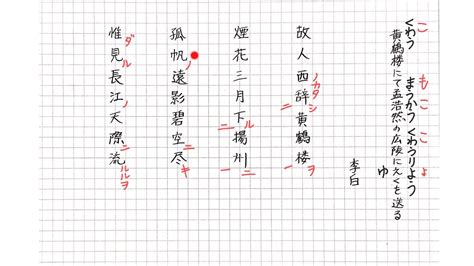 こ　もこ　こ　よ
くわう　まうかつ　くわうりよう
黄鶴楼にて孟浩然の広陵にえくを送る
ゆ
李白
故人西ノカタ辞シ二黄鶴楼ヲ一
煙花三月下ル二揚州ニ一
孤帆ノ遠影碧空ニ尽キ
惟ダ見ル長江ノ天際ニ流ルルヲ